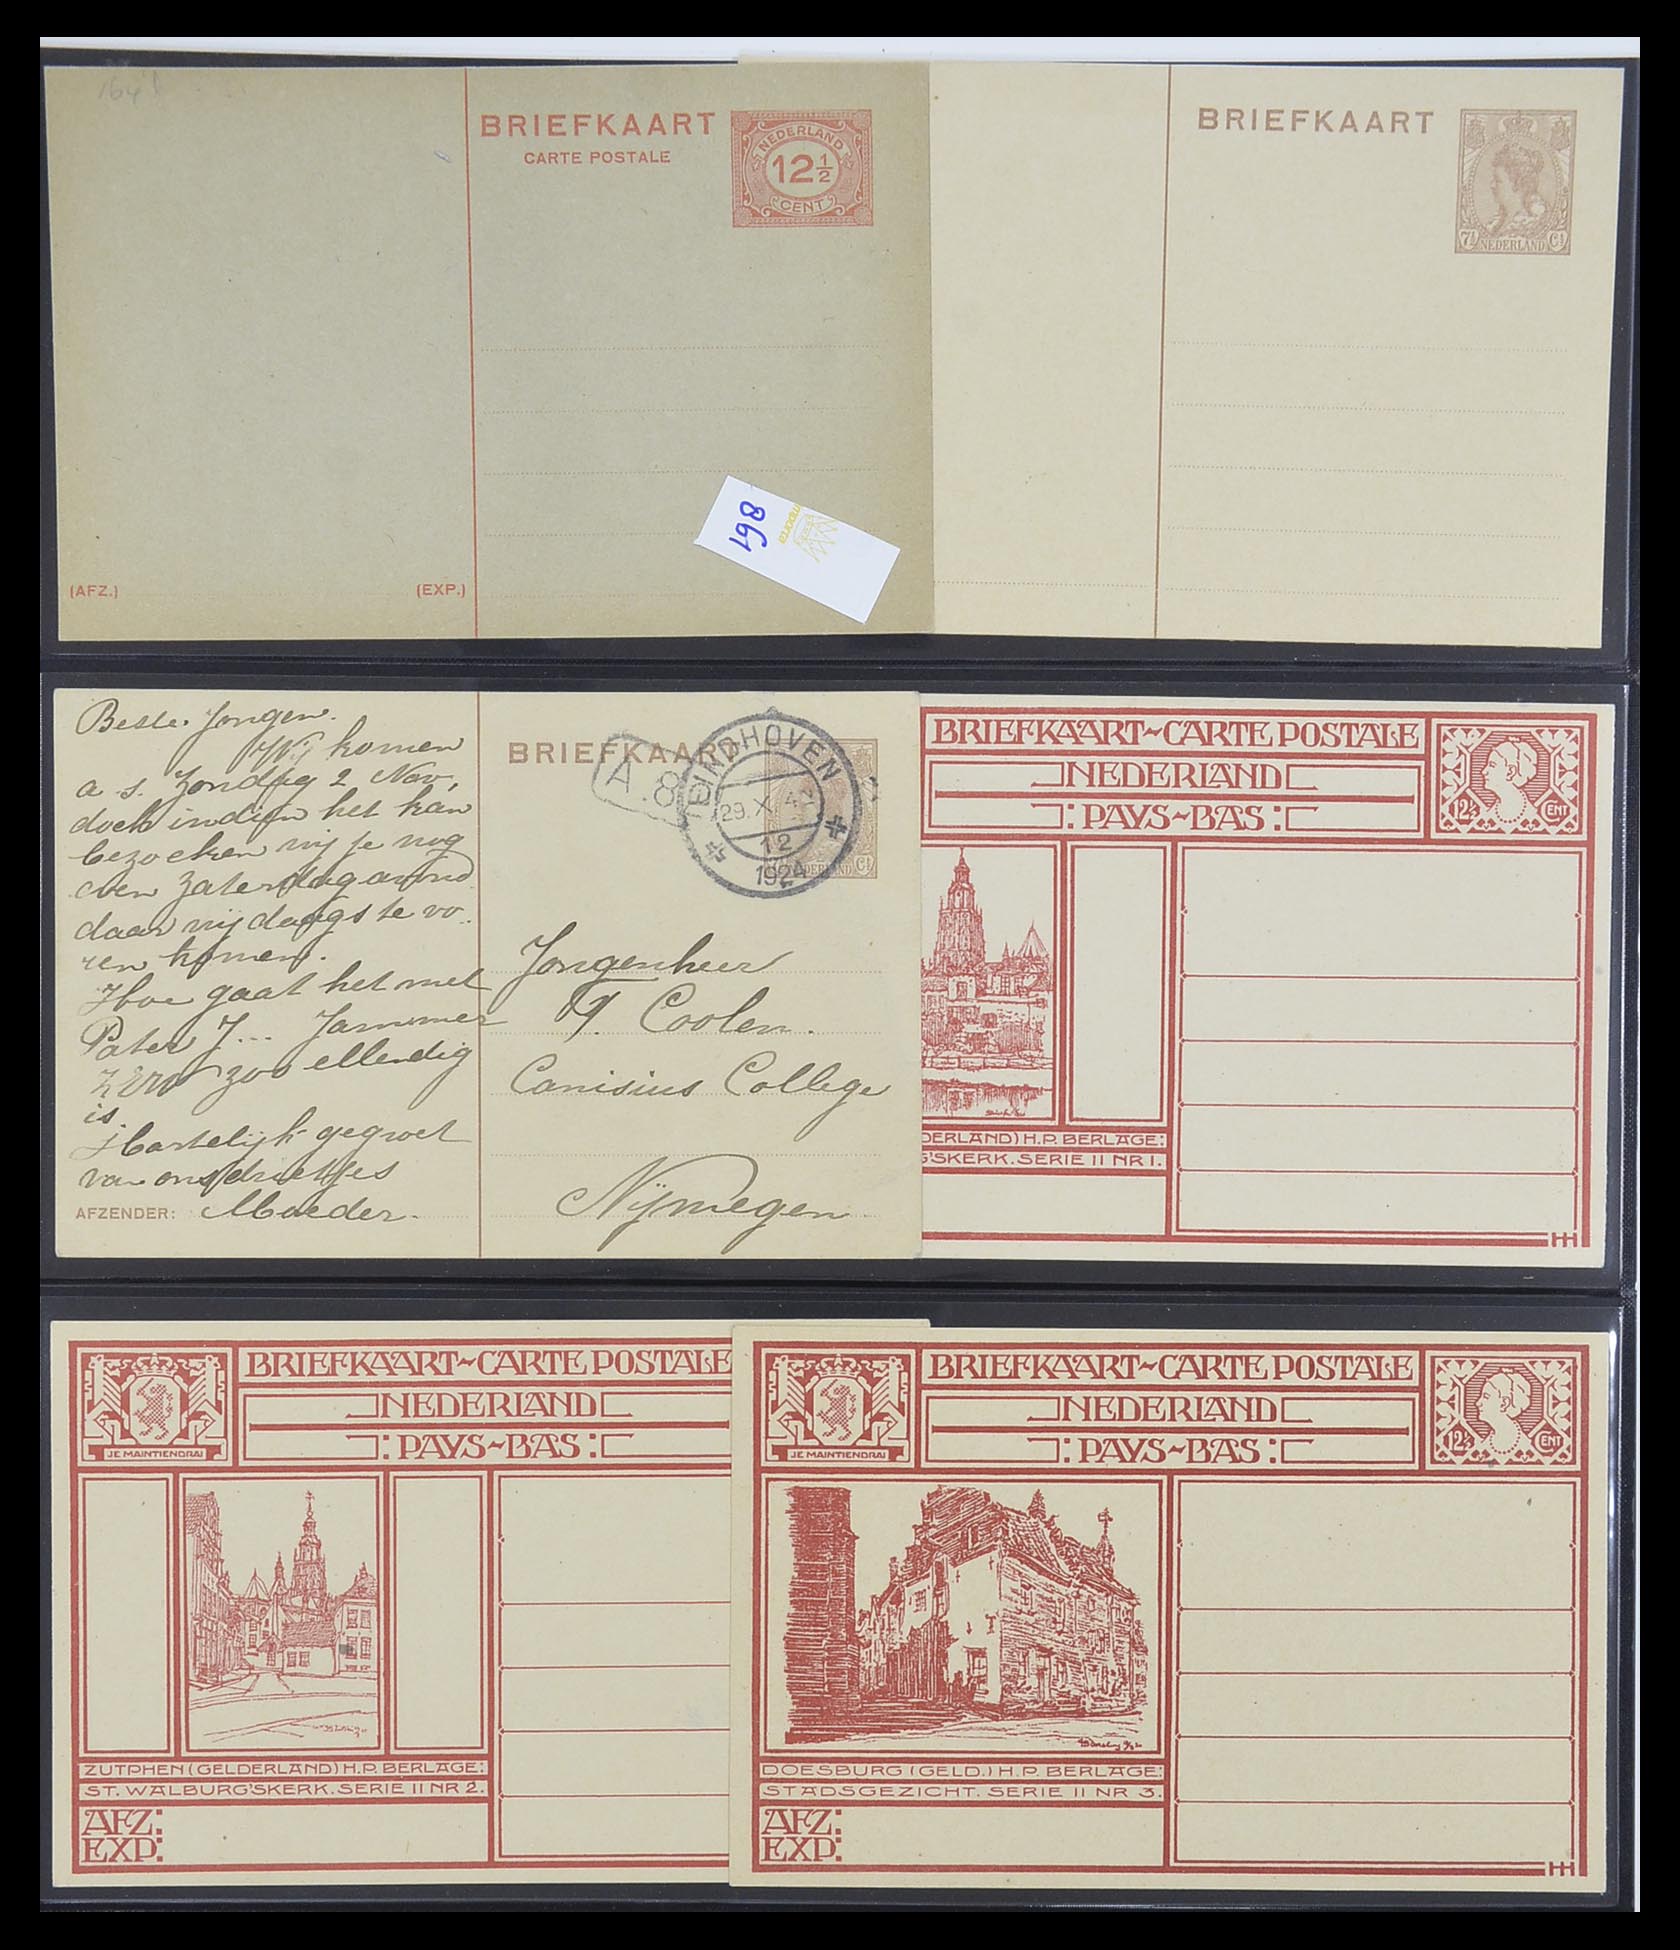 164
BRIEFKAART
CARTE POSTALE
NEDERLAND
12½
CENT
(AFZ.)
(EXP.)
861
importa
BRIEFKAART
7½ Ct
NEDERLAND
Beste Jongen.
Wij komen
a.s. Zondag 2 Nov,
doch indien het kan
bezoeken wij je nog
even Zaterdagavond
daar wij daags te vo-
ren komen.
Hoe gaat het met
Pater J... Jammer
zoo ellendig
is.
Hartelijk gegroet
van ons drietjes
AFZENDER: Moeder.
BRIEFKAART
A.8
EINDHOVEN
29.X
12
1924
NEDERLAND Ct
Jongenheer
Coolen.
Canisius College
Nijmegen
BRIEFKAART~CARTE POSTALE
NEDERLAND
:PAYS~BAS:
12½ CENT
DERLAND) H.P. BERLAGE:
G'SKERK. SERIE II NR 1.
JE MAINTIENDRAI
BRIEFKAART~CARTE POSTALE
NEDERLAND
:PAYS~BAS:
ZUTPHEN (GELDERLAND) H.P. BERLAGE:
ST. WALBURG'SKERK. SERIE II NR 2.
AFZ:
EXP:
JE MAINTIENDRAI
BRIEFKAART~CARTE POSTALE
NEDERLAND
:PAYS~BAS:
12½ CENT
DOESBURG (GELD.) H.P. BERLAGE:
STADSGEZICHT. SERIE II NR 3.
AFZ:
EXP: